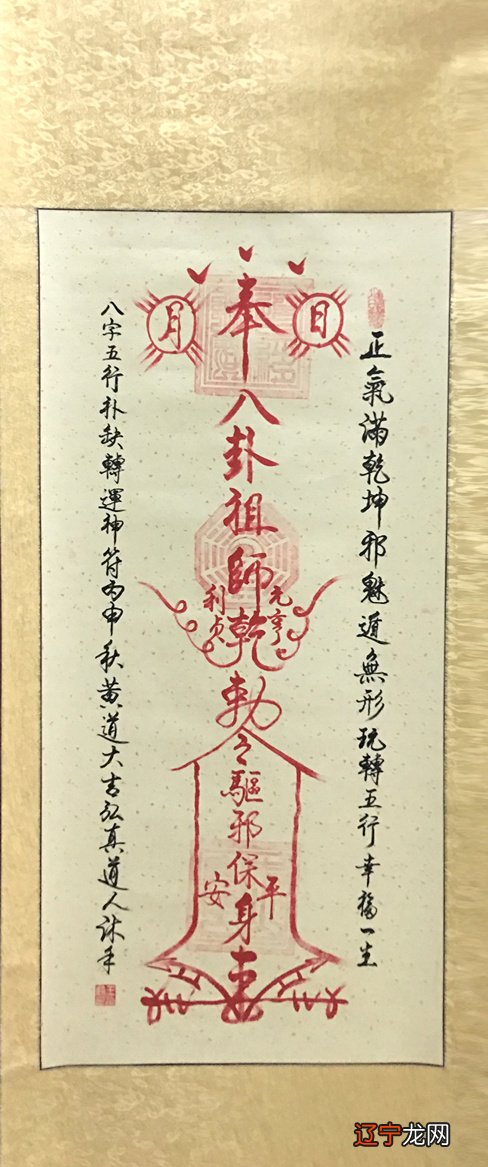 正氣满乾坤邪魅遁無形玩轉五行幸福一生
日
奉
月
八卦祖師乾
元亨
利贞
勅令
驅邪保身
平
安
八字五行补缺轉運神符丙申秋黄道大吉弘真道人沐手
辽宁龙网